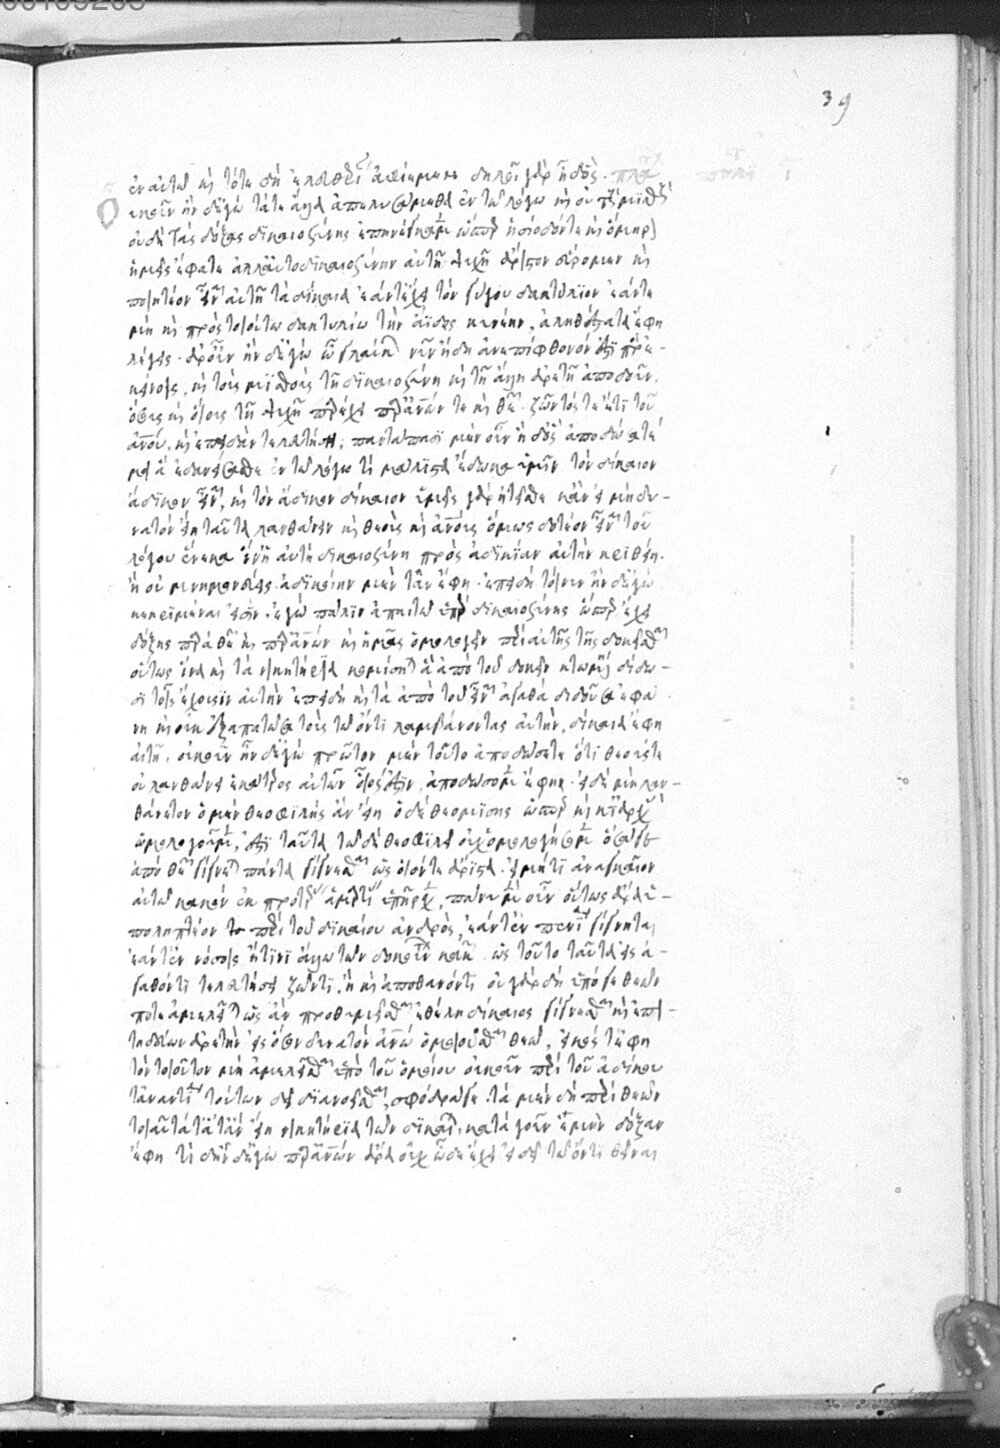 ἐν αὐτῷ καὶ τότε δὴ ἐπελθεῖ ἀφίεμεν δηλοῖ γὰρ ἡ δὸς.
οὐκοῦν ἦν δ' ἐγὼ τά τε ἄλλα ἀπελυσάμεθα ἐν τῷ λόγω καὶ οὐ τοὺς μισθοὺς
οὐδὲ τὰς δόξας δικαιοσύνης ἐπηνέγκαμεν ὥσπερ ἡσίοδόν τε καὶ ὅμηρον
ὑμεῖς ἔφατε ἀλλ' αὐτὸ δικαιοσύνην αὐτῆ ψυχῆ ἄριστον εὕρομεν καὶ
ποιητέον εἶναι αὐτῆ τὰ δίκαια ἐάντ' ἔχη τὸν γύγου δακτύλιον ἐάντε
μὴ καὶ πρὸς τοιούτω δακτυλίω τὴν ἄϊδος κυνέην, ἀληθέστατα ἔφη
λέγεις. ἆρ' οὖν ἦν δ' ἐγὼ ὦ γλαύκων νῦν ἤδη ἀνεπίφθονόν ἐστι πρὸς ἐ-
κείνοις, καὶ τοὺς μισθοὺς τῆ δικαιοσύνη καὶ τῆ ἄλλη ἀρετῆ ἀποδοῦναι,
ὅσους καὶ οἵους τῆ ψυχῆ παρέχει παρ' ἀνθρώπων τε καὶ θεῶν. ζῶντός τε ἔτι τοῦ
ἀνθρώπου, καὶ ἐπειδὰν τελευτήση; παντάπασι μὲν οὖν ἦ δ' ὅς ἀποδώσετέ
μοι ἃ ἐδανείσασθε ἐν τῷ λόγω τί μάλιστα ἔδωκα ὑμῖν τὸν δίκαιον
ἄδικον εἶναι, καὶ τὸν ἄδικον δίκαιον ὑμεῖς γὰρ ἡγεῖσθε κἂν εἰ μὴ δυ-
νατὸν εἴη ταῦτα λανθάνειν καὶ θεοὺς καὶ ἀνθρώπους ὅμως δοτέον εἶναι τοῦ
λόγου ἕνεκα ἵν' ἦ αὐτὴ δικαιοσύνη πρὸς ἀδικίαν αὐτὴν κριθείη.
ἢ οὐ μνημονεύεις. ἀδικοίην μέντ' ἂν ἔφη. ἐπειδὴ τοίνυν ἦν δ' ἐγὼ
κεκριμέναι εἰσὶν. ἐγὼ πάλιν ἀπαιτῶ ὑπὲρ δικαιοσύνης ὥσπερ ἔχει
δόξης παρὰ θεῶν καὶ παρ' ἀνθρώπων καὶ ἡμᾶς ὁμολογεῖν περὶ αὐτῆς τῆς δοκεῖσθαι
οὕτως ἵνα καὶ τὰ νικητήρια κομίσηται ἃ ἀπὸ τοῦ δοκεῖν κτωμένη δίδω-
σι τοῖς ἔχουσιν αὐτὴν ἐπειδὴ καὶ τὰ ἀπὸ τοῦ εἶναι ἀγαθὰ διδοῦσα ἐφά
νη καὶ οὐκ ἐξαπατῶσα τοὺς τῷ ὄντι λαμβάνοντας αὐτὴν, δίκαια ἔφη
αἰτῆ. οὐκοῦν ἦν δ' ἐγὼ πρῶτον μὲν τοῦτο ἀποδώσετε ὅτι θεούς γε
οὐ λανθάνει ἑκάτερος αὐτῶν οἷός ἐστιν, ἀποδώσομεν ἔφη. εἰ δὲ μὴ λαν-
θάνετον ὁ μὲν θεοφιλὴς ἂν εἴη ὁ δὲ θεομισὴς ὥσπερ καὶ κατ' ἀρχὰς
ὡμολογοῦμεν, ἔστι ταῦτα τῷ δὲ θεοφιλεῖ οὐχ ὁμολογήσομεν ὅσα γε
ἀπὸ θεῶν γίγνεται πάντα γίγνεσθαι ὡς οἷόν τε ἄριστα. εἰ μή τι ἀναγκαῖον
αὐτῷ κακὸν ἐκ προτέρας ἁμαρτίας ὑπῆρχεν, πάνυ μὲν οὖν οὕτως ἄρα ὑ-
ποληπτέον περὶ τοῦ δικαίου ἀνδρὸς, ἐάντ' ἐν πενία γίγνηται
ἐάντ' ἐν νόσοις ἤ τινι ἄλλω τῶν δοκούντων κακῶν. ὡς τούτω ταῦτα εἰς ἀ-
γαθόν τι τελευτήσει ζῶντι, ἢ καὶ ἀποθανόντι οὐ γὰρ δὴ ὑπό γε θεῶν
ποτε ἀμελεῖται ὡς ἂν προθυμεῖσθαι ἐθέλη δίκαιος γίγνεσθαι καὶ ἐπι-
τηδεύων ἀρετὴν εἰς ὅσον δυνατὸν ἀνθρώπω ὁμοιοῦσθαι θεῷ, εἰκός γ' ἔφη
τὸν τοιοῦτον μὴ ἀμελεῖσθαι ὑπὸ τοῦ ὁμοίου οὐκοῦν περὶ τοῦ ἀδίκου
τἀναντία τούτων δεῖ διανοεῖσθαι, σφόδρα γε. τὰ μὲν δὴ παρὰ θεῶν
τοιαῦτ' ἄττ' ἂν εἴη νικητήρια τῶν δικαίων. κατὰ γοῦν ἐμὴν δόξαν
ἔφη τί δ' ἦν δ' ἐγὼ παρ' ἀνθρώπων ἆρ' οὐχ ὧδε ἔχει εἰ δεῖ τῷ ὄντι θεῖναι